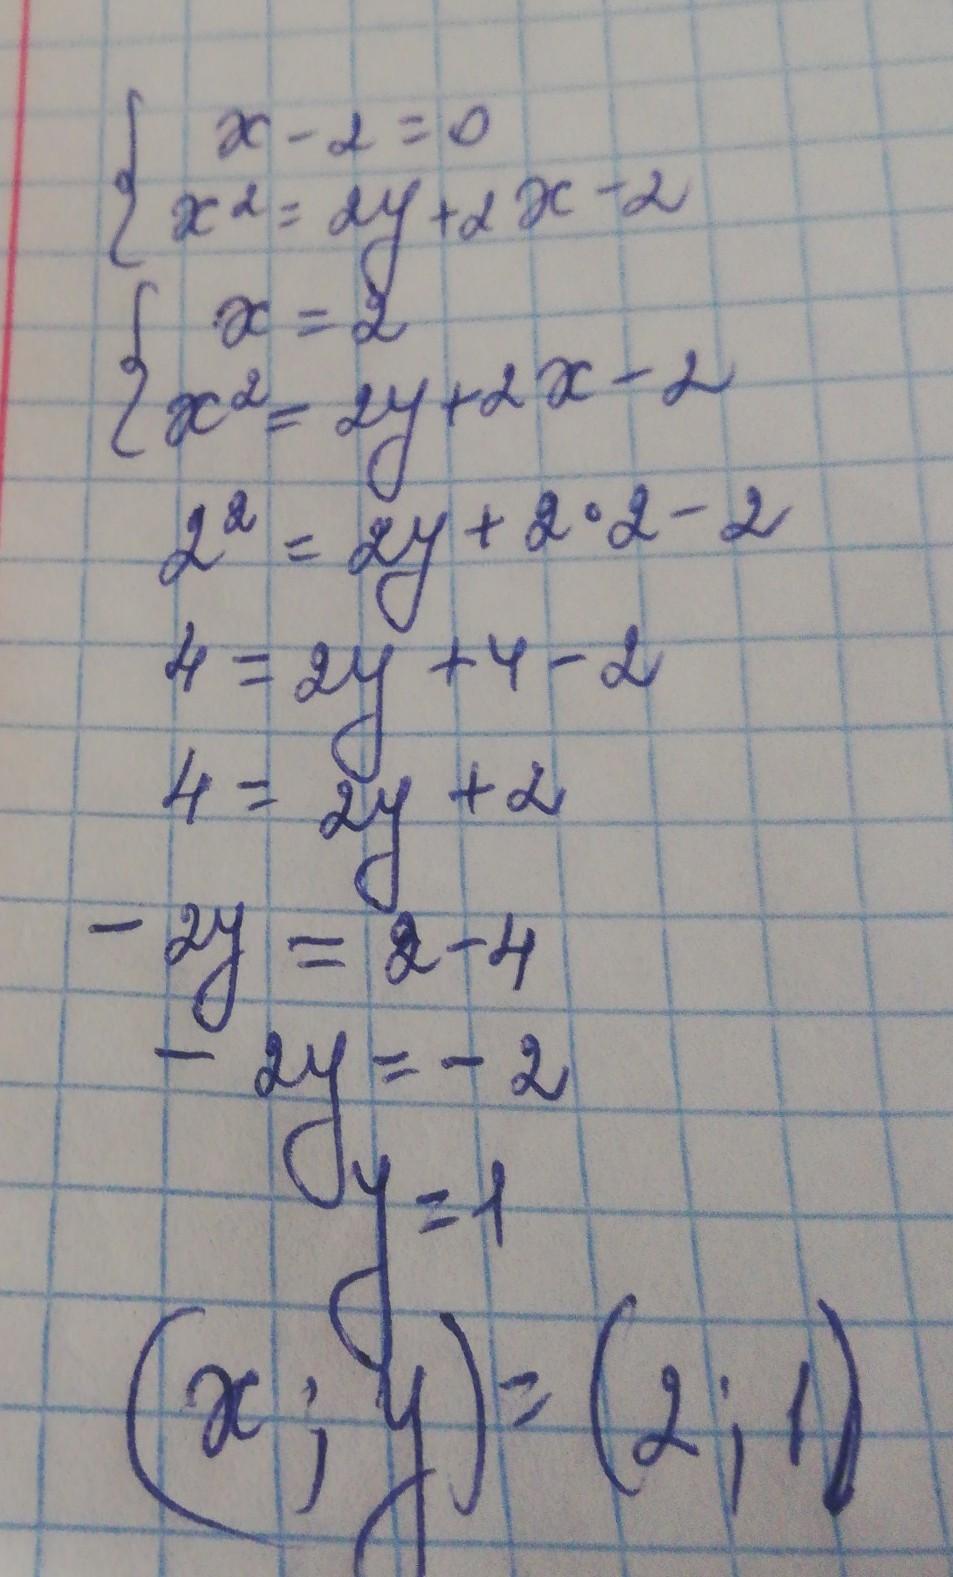 { x - 2 = 0
x² = 2y + 2x - 2
{ x = 2
x² = 2y + 2x - 2
2² = 2y + 2 • 2 - 2
4 = 2y + 4 - 2
4 = 2y + 2
- 2y = 2 - 4
- 2y = - 2
y = 1
(x ; y) = (2 ; 1)